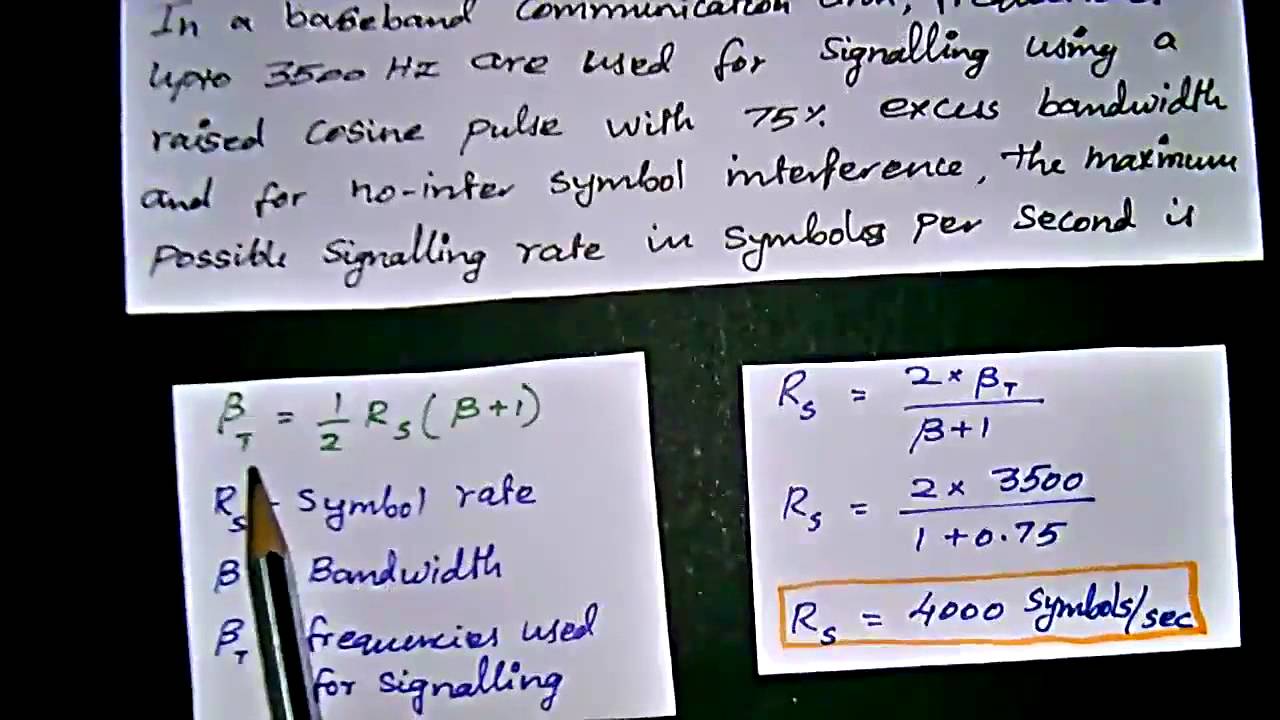 In a baseband communication
upto 3500 Hz are used for signalling using a
raised cosine pulse with 75% excess bandwidth
and for no-inter symbol interference, the maximum
possible signalling rate in symbols per second is
β_T = 1/2 R_S (β+1)
R_S - Symbol rate
β Bandwidth
β_T frequencies used
for signalling
R_S = 2 × β_T / β+1
R_S = 2 × 3500 / 1+0.75
R_S = 4000 Symbols/sec